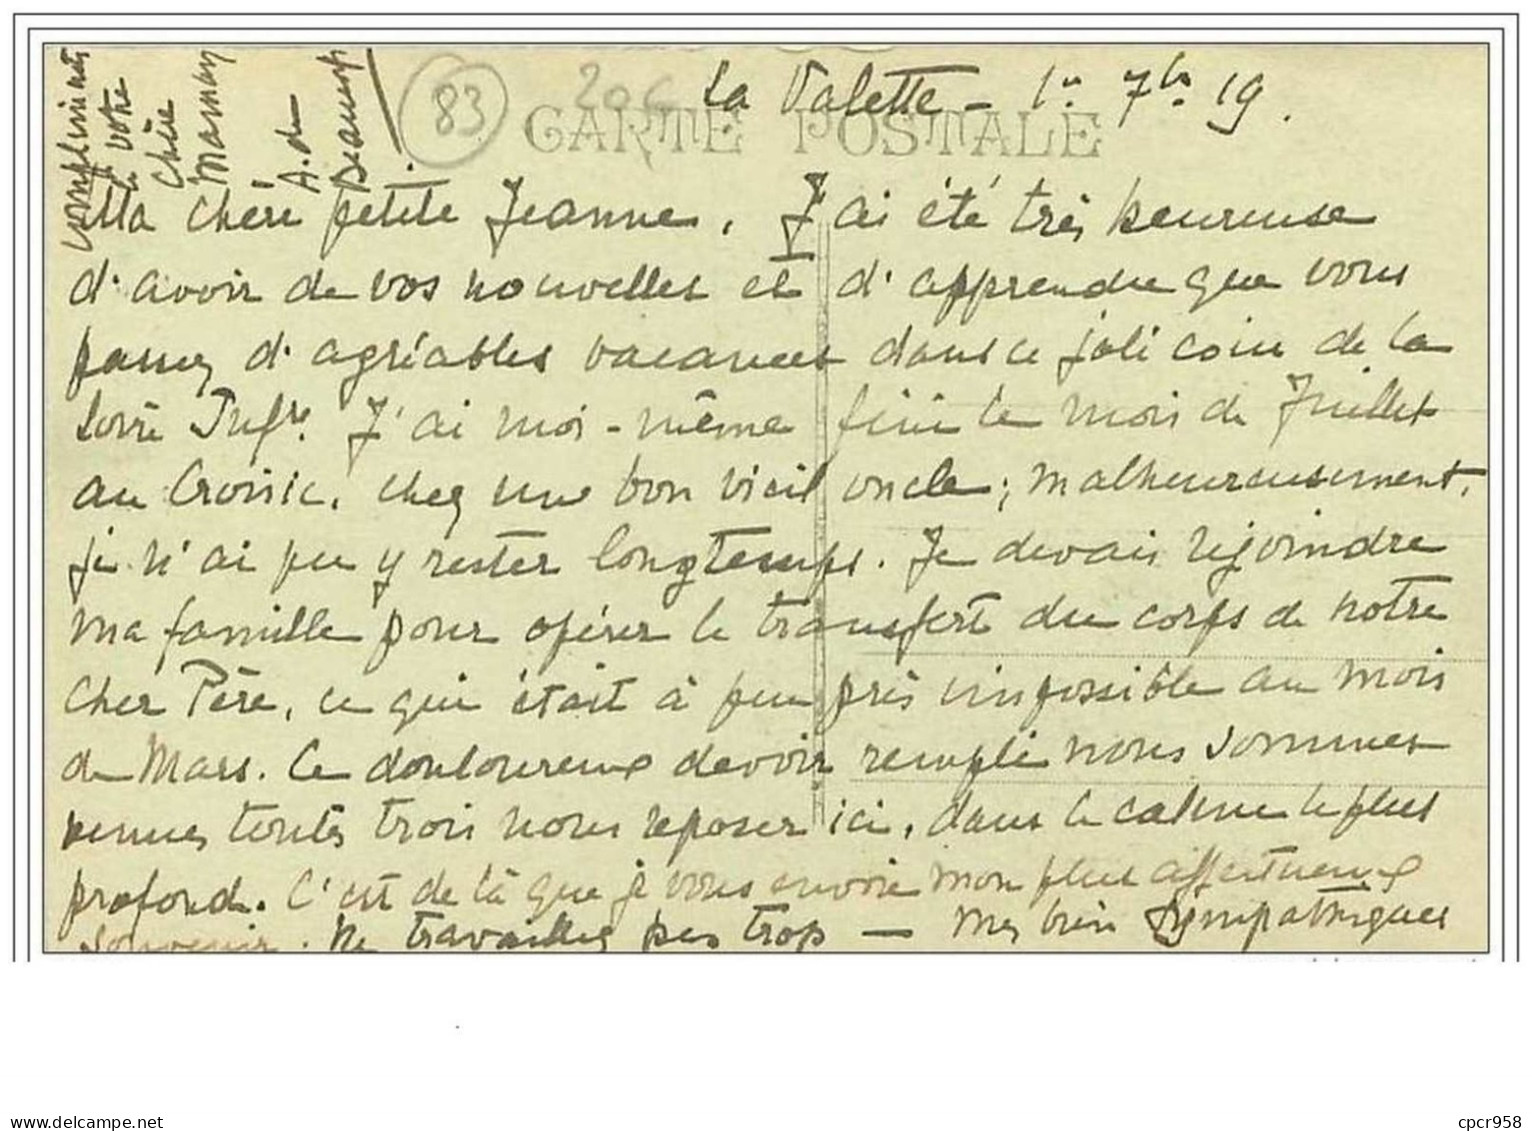 83
20c
La Valette - 1er 7bre 19.
CARTE POSTALE
Ma chère petite Jeanne, J'ai été très heureuse
d'avoir de vos nouvelles et d'apprendre que vous
passez d'agréables vacances dans ce joli coin de la
Loire Infre. J'ai moi-même fini le mois de Juillet
au Croisic, chez une bon vieil oncle; malheureusement,
je n'ai pu y rester longtemps. Je devais rejoindre
ma famille pour opérer le transfert du corps de notre
cher Père, ce qui était à peu près impossible au mois
de Mars. Ce douloureux devoir rempli nous sommes
venues toutes trois nous reposer ici, dans le calme le plus
profond. C'est de là que je vous envoie mon plus affectueux
souvenir. Ne travaillez pas trop — Mes bien sympathiques
compliments
à votre
chère
Maman
A. de